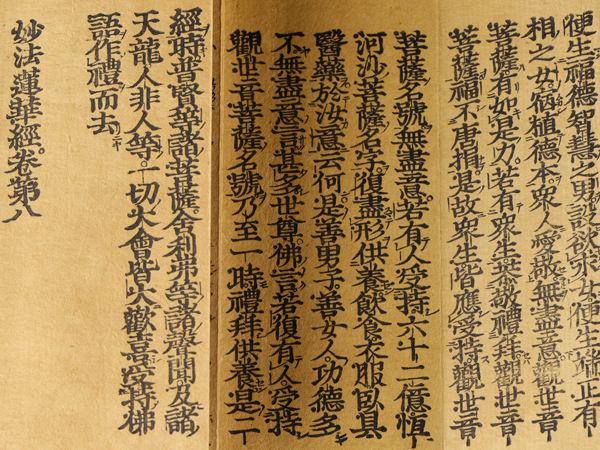 便生福德智慧之男設欲求女便生端正有
相之女宿植德本衆人愛敬無盡意觀世音
菩薩有如是力若有衆生恭敬禮拜觀世音
菩薩福不唐捐是故衆生皆應受持觀世音
菩薩名號無盡意若有人受持六十二億恒
河沙菩薩名字復盡形供養飲食衣服臥具
醫藥於汝意云何是善男子善女人功德多
不無盡意言甚多世尊佛言若復有人受持
觀世音菩薩名號乃至一時禮拜供養是二
經時普賢等諸菩薩舍利弗等諸聲聞及諸
天龍人非人等一切大會皆大歡喜受持佛
語作禮而去
妙法蓮華經卷第八